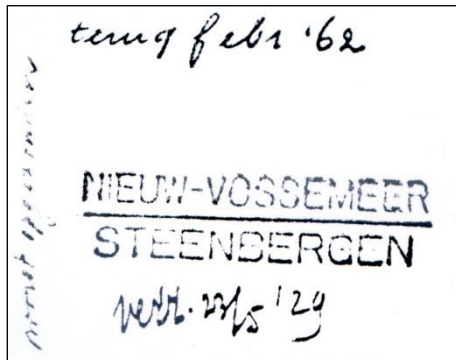 terug febr '62
NIEUW-VOSSEMEER
STEENBERGEN
vertr. 23/5 '29